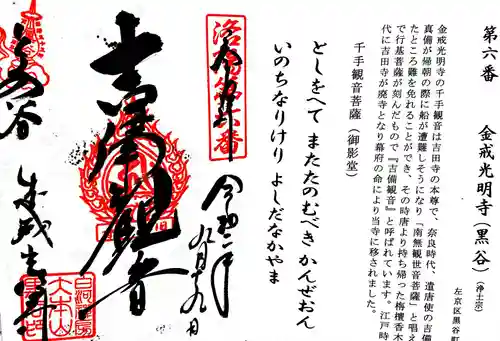 第六番 金戒光明寺（黒谷）（浄土宗）
左京区黒谷町
金戒光明寺の千手観音は吉田寺の本尊で、奈良時代、遣唐使の吉備
真備が帰朝の際に船が遭難しそうになり『南無観世音菩薩』と唱え
たところ難を免れることができ、その時唐より持ち帰った栴檀香木
で行基菩薩が刻んだもので『吉備観音』と呼ばれています。江戸時
代に吉田寺が廃寺となり幕府の命により当寺に移されました。
千手観音菩薩（御影堂）
としをへて またたのむべき かんぜおん
いのちなりけり よしだなかやま
洛陽第六番
令和二年
九月十九日
吉備観音